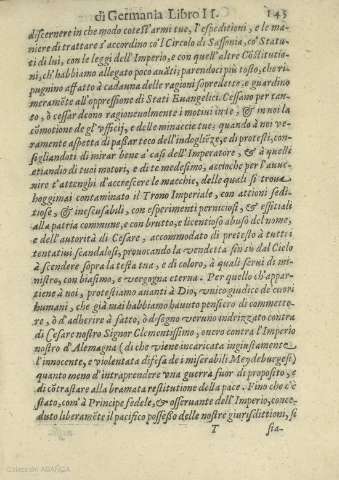 di Germania Libro II. 145
discernere in che modo cotest'armi tue, l'espeditioni, e le ma-
niere di trattare s'accordino co'l Circolo di Sassonia, co' Statu-
ti di lui, con le leggi dell'Imperio, e con quell'altre Cõstitutio-
ni, ch'habbiamo allegato poco auãti; parendoci più tosto, che ri-
pugnino affatto à cadauna delle ragioni sopredette, e guardino
meramẽte all'oppressione di Stati Euangelici. Cessano per tan-
to, ò cessar deono ragioneuolmente i motiui in te; & in noi la
cõmotione de gl'vfficij, e delle minaccie tue; quando à noi ve-
ramente aspetta di passar teco dell'indoglieze, e di protesti, con-
sigliandoti di mirar bene a' casi dell'Imperatore, & à quelli
etiandio di tuoi motori, e di te medesimo, accioche per l'auue-
nire t'attẽghi d'accrescere le macchie, delle quali si troua
hoggimai contaminato il Trono Imperiale, con attioni sedi-
tiose, & inescusabili, con esperimenti perniciosi, & essitiali
alla patria commune, e con brutto, e licentioso abuso del nome,
e dell'autorità di Cesare, accommodato di pretesto à tutti i
tentatiui scandalosi, prouocando la vendetta sin sù dal Cielo
à scendere sopra la testa tua, e di coloro, à quali serui di mi-
nistro, con biasimo, e vergogna eterna. Per quello ch'appar-
tiene à noi, protestiamo auanti à Dio, vnico giudice de' cuori
humani, che già mai habbiamo hauuto pensiero di commette-
re, ò d'adherire à fatto, ò disegno veruno indrizzato contra
di Cesare nostro Signor Clementissimo, ouero contra l'Imperio
nostro d'Alemagna (di che viene incaricata ingiustamente
l'innocente, e violentata difesa de i miserabili Meydeburgesi)
quanto meno d'intraprendere vna guerra fuor di proposito, e
di cõtrastare alla bramata restitutione della pace. Fino che c'è
stato, com'à Principe fedele, & osseruante dell'Imperio, conce-
duto liberamẽte il pacifico possesso delle nostre giurisdittioni, si
T sia-